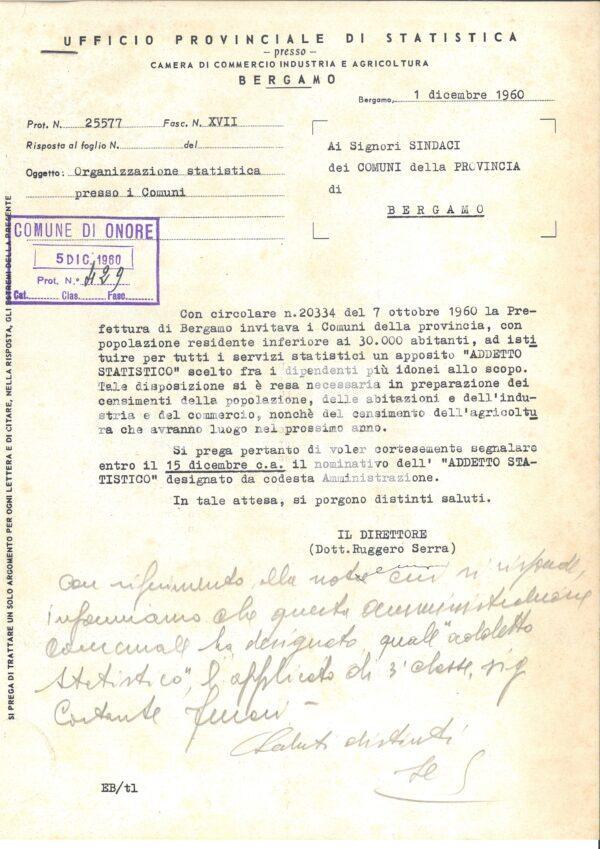 UFFICIO PROVINCIALE DI STATISTICA
- presso -
CAMERA DI COMMERCIO INDUSTRIA E AGRICOLTURA
BERGAMO
Bergamo, 1 dicembre 1960
Prot. N. 25577 Fasc. N. XVII
Risposta al foglio N. del
Oggetto: Organizzazione statistica
presso i Comuni
Ai Signori SINDACI
dei COMUNI della PROVINCIA
di
BERGAMO
COMUNE DI ONORE
5 DIC. 1960
Prot. N.° 429
Cat. Clas. Fasc.
SI PREGA DI TRATTARE UN SOLO ARGOMENTO PER OGNI LETTERA E DI CITARE, NELLA RISPOSTA, GLI ESTREMI DELLA PRESENTE
Con circolare n.20334 del 7 ottobre 1960 la Pre-
fettura di Bergamo invitava i Comuni della provincia, con
popolazione residente inferiore ai 30.000 abitanti, ad isti
tuire per tutti i servizi statistici un apposito "ADDETTO
STATISTICO" scelto fra i dipendenti più idonei allo scopo.
Tale disposizione si è resa necessaria in preparazione dei
censimenti della popolazione, delle abitazioni e dell'indu-
stria e del commercio, nonchè del censimento dell'agricoltu
ra che avranno luogo nel prossimo anno.
Si prega pertanto di voler cortesemente segnalare
entro il 15 dicembre c.a. il nominativo dell' "ADDETTO STA-
TISTICO" designato da codesta Amministrazione.
In tale attesa, si porgono distinti saluti.
IL DIRETTORE
(Dott. Ruggero Serra)
Con riferimento alla nota cui si risponde,
informiamo che questa amministrazione
comunale ha designato, quale "addetto
statistico", l'applicato di 3ª classe, sig
Costante
Saluti distinti
EB/tl